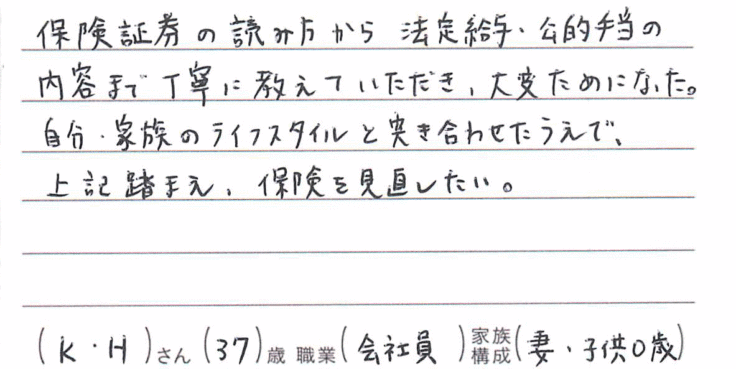 保険証券の読み方から 法定給与・公的手当の
内容まで丁寧に教えていただき、大変ためになった。
自分・家族のライフスタイルと突き合わせたうえで、
上記踏まえ、保険を見直したい。
(K・H)さん(37)歳 職業(会社員)家族構成(妻・子供0歳)